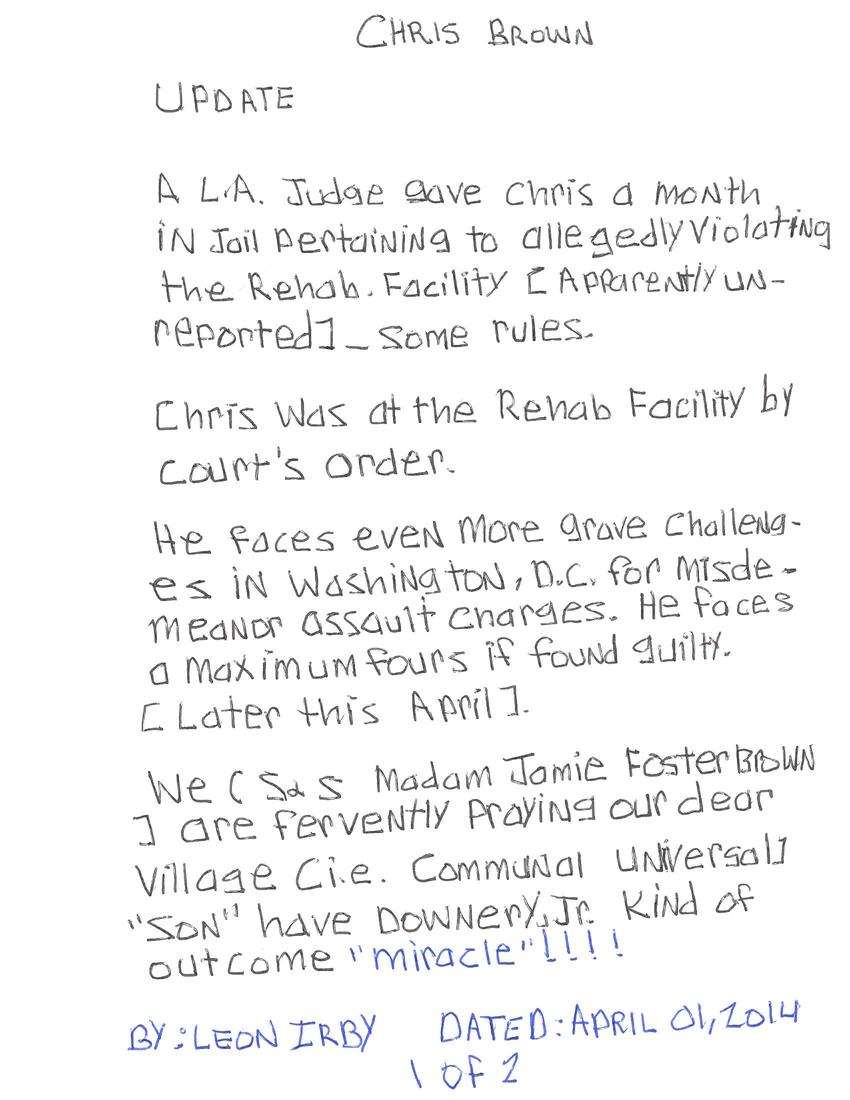 CHRIS BROWN
UPDATE
A L.A. Judge gave Chris a month
in Jail pertaining to allegedly violating
the Rehab. Facility [Apparently un-
reported] _ some rules.
Chris was at the Rehab Facility by
Court's order.
He faces even more grave challeng-
es in Washington, D.C. for misde-
meanor assault charges. He faces
a maximum fours if found guilty.
[Later this April].
We ( S2S Madam Jamie Foster Brown
] are fervently praying our dear
Village Ci.e. Communal universal]
"SON" have Downery, Jr. Kind of
outcome "miracle"!!!!
BY: LEON IRBY DATED: APRIL 01, 2014
1 OF 2